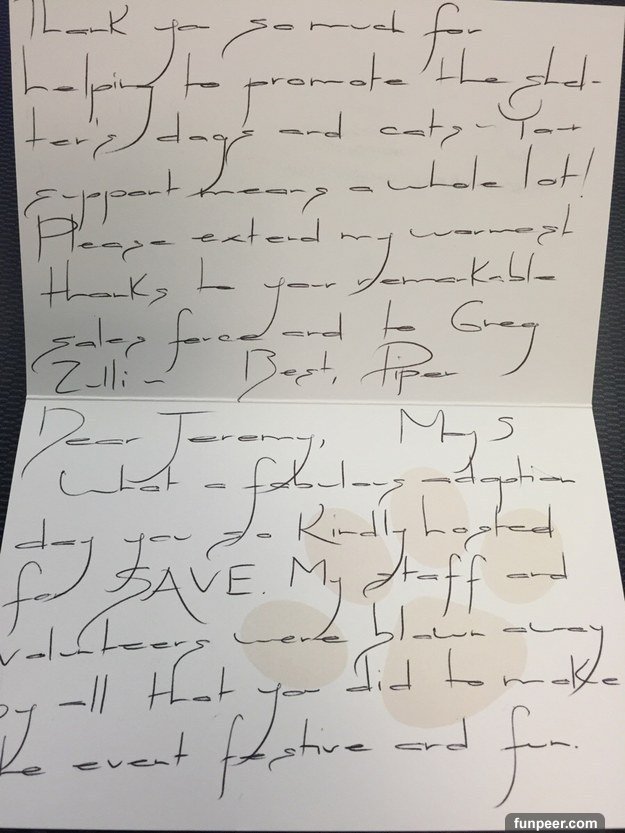 Thank you so much for
helping to promote the shel-
ter's dogs and cats - Your
support means a whole lot!
Please extend my warmest
thanks to your remarkable
sales force and to Greg
Zulli - Best, Piper
Dear Jeremy, May 5
What a fabulous adoption
day you so kindly hosted
for SAVE. My staff and
volunteers were blown away
by all that you did to make
the event festive and fun.
funpeer.com